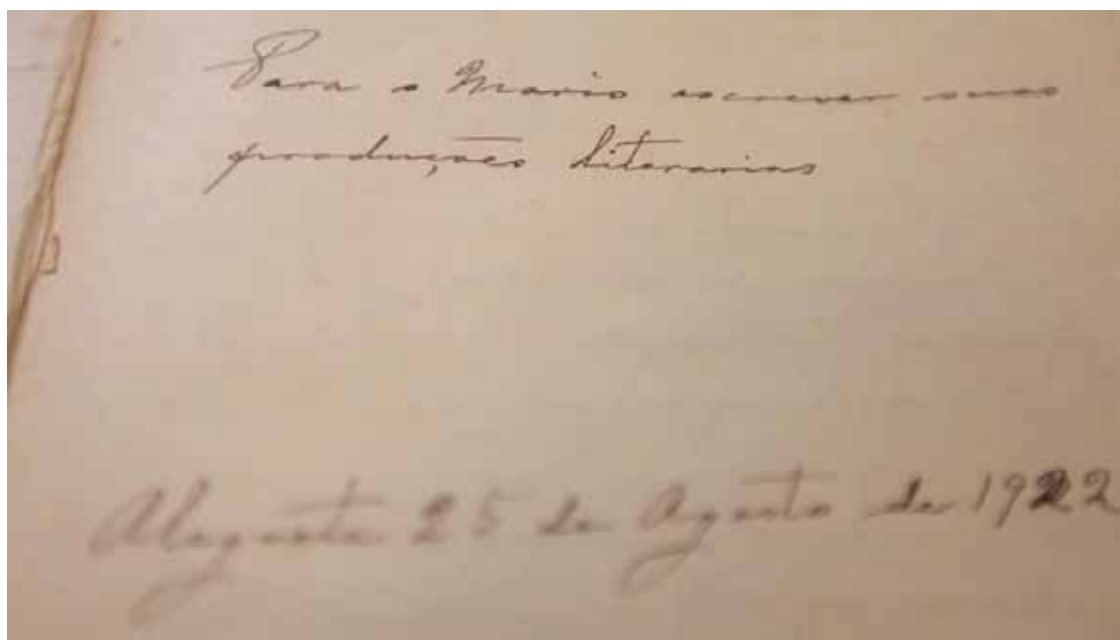 Para o Mario escrever suas
produções literarias
Alegrete 25 de Agosto de 1922